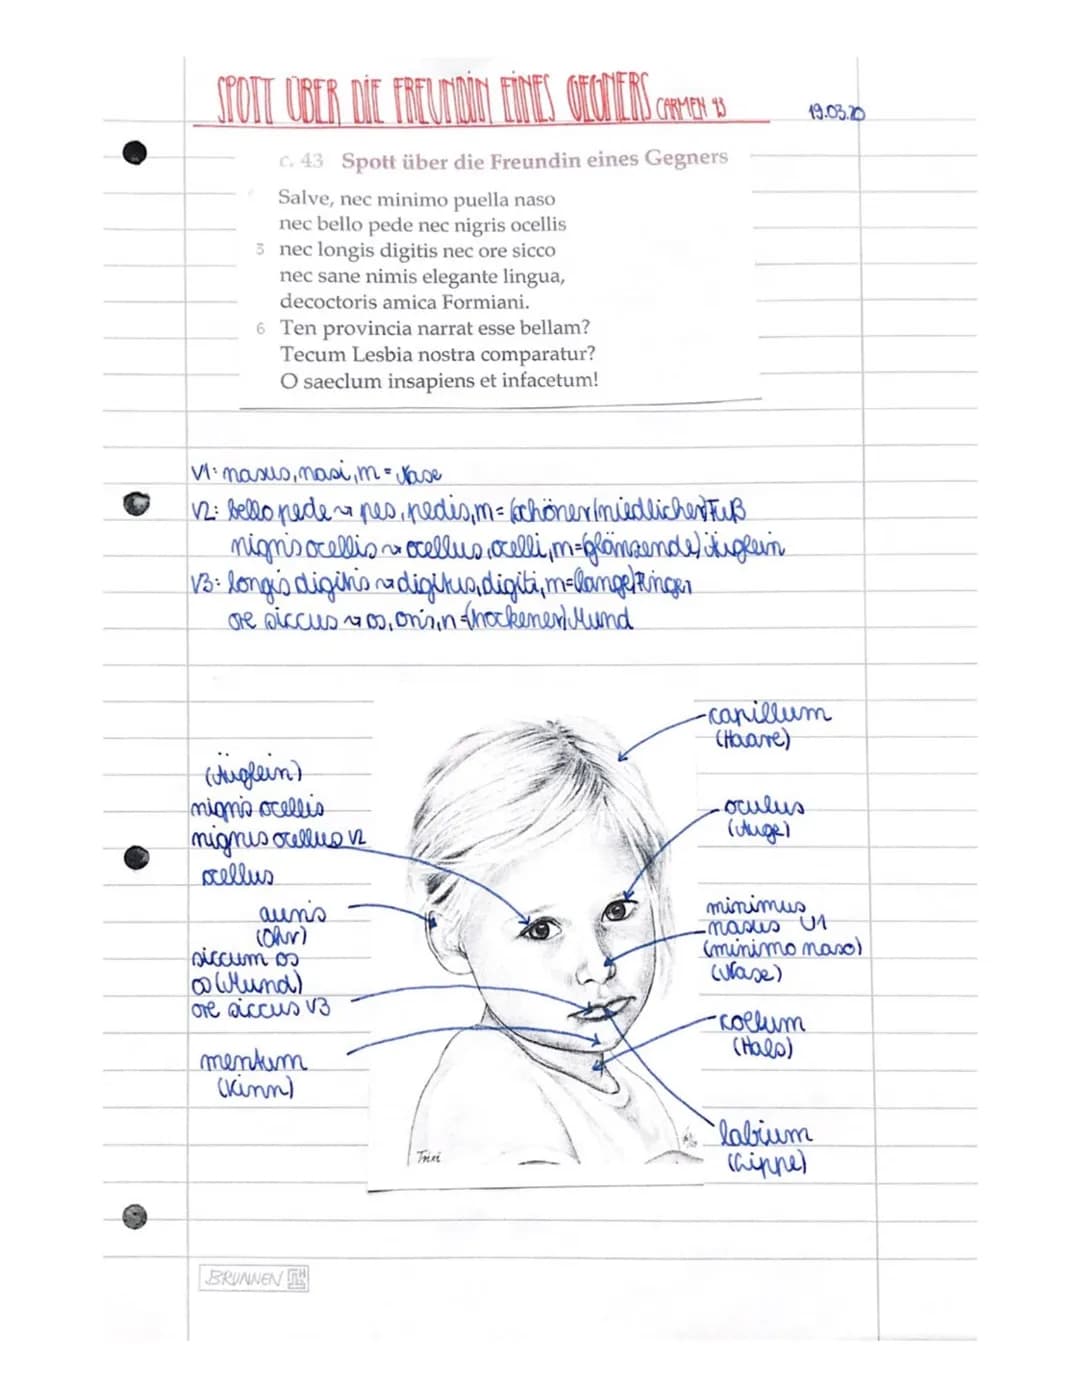 SPOTT ÜBER DIE FREUNDIN EINES GEGNERS CARMEN 43
19.03.20
c. 43 Spott über die Freundin eines Gegners
Salve, nec minimo puella naso
nec bello pede nec nigris ocellis
3 nec longis digitis nec ore sicco
nec sane nimis elegante lingua,
decoctoris amica Formiani.
6 Ten provincia narrat esse bellam?
Tecum Lesbia nostra comparatur?
O saeclum insapiens et infacetum!
V1: nasus, nasi, m = Nase
V2: bello pede ~> pes, pedis, m = (schöner/niedlicher) Fuß
nigris ocellis ~> ocellus, ocelli, m = (glänzende) Äuglein
V3: longis digitis ~> digitus, digiti, m = (lange) Finger
ore siccus ~> os, oris, n = (trockener) Mund
capillum
(Haare)
(Äuglein)
nigris ocellis
nigrus ocellus V2
ocellus
oculus
(Auge)
auris
(Ohr)
minimus
nasus V1
(minimo naso)
(Nase)
siccum os
os (Mund)
ore siccus V3
collum
(Hals)
mentum
(Kinn)
labium
(Lippe)
Trixi
BRUNNEN